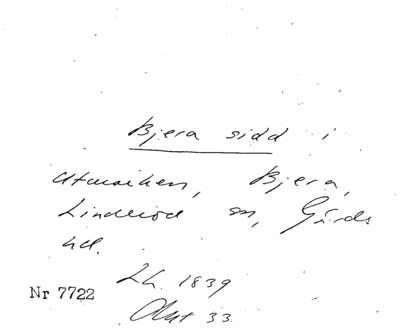 Bjera sidd i
utmarken, Bjera,
Linderöd sn, Gärds
hd.
Lh. 1839
Nr 7722
Akt 33.